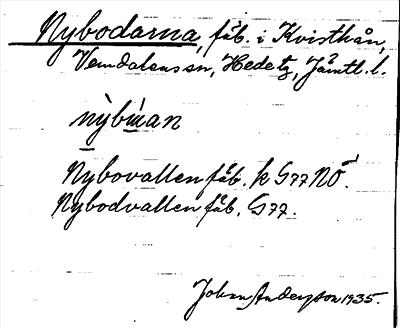 Nybodarna, fäb. i Kvisthån,
Vemdalens sn, Hede tg, Jämtl. l.
nỳbẁan
Nybovallen fäb. k G77 NÖ.
Nybodvallen fäb. G77.
Johan Andersson 1935.